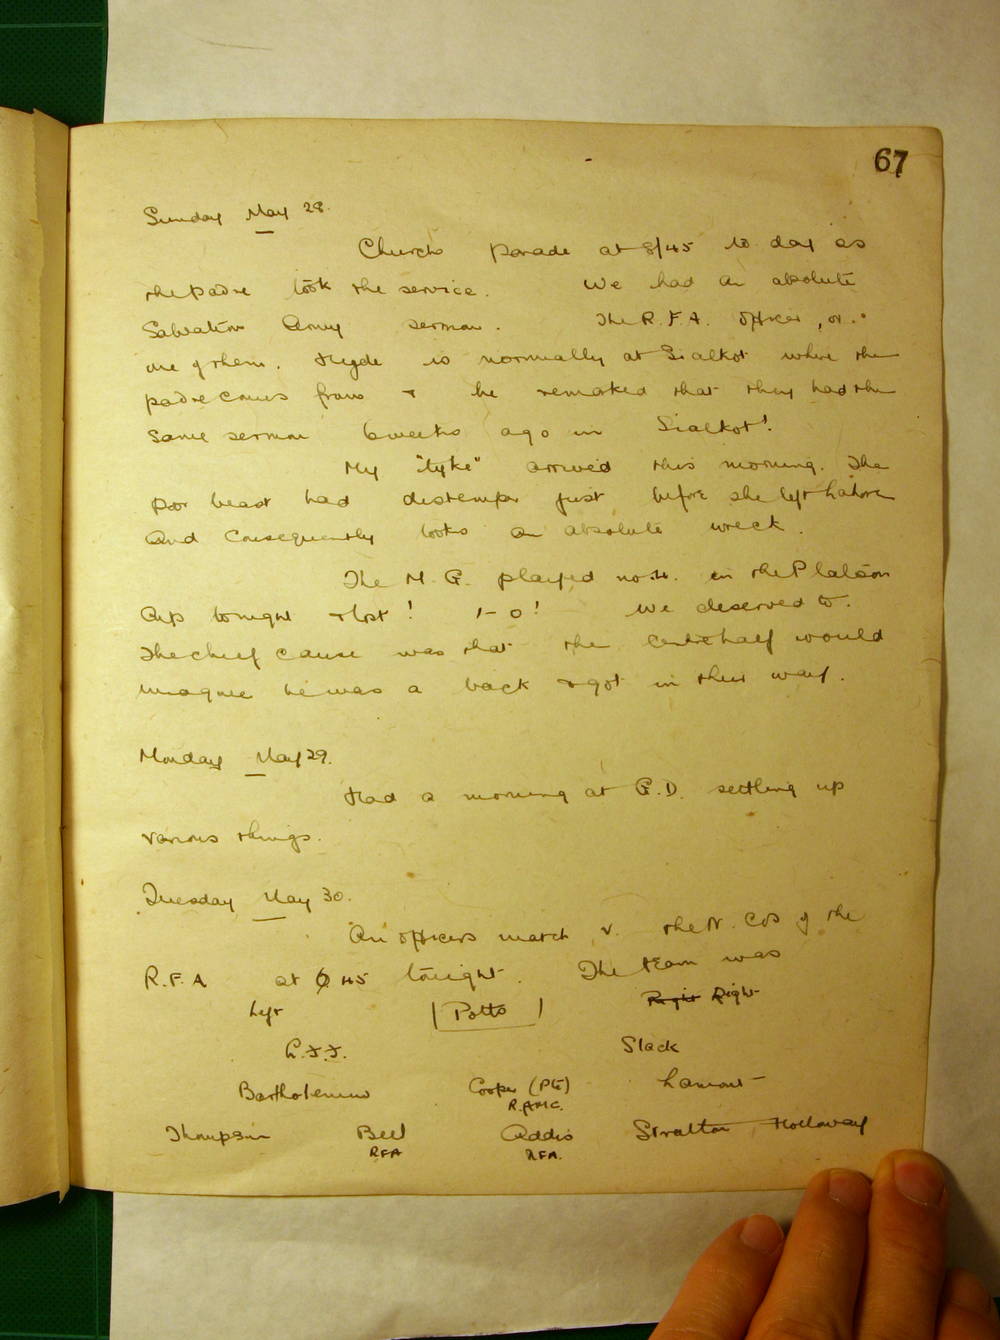 67
Sunday May 28.
Church parade at 8/45 to day as
the padre took the service. We had an absolute
Salvation Army sermon. The R.F.A. officer, or
one of them. Hyde is normally at Sialkot where the
padre comes from & he remarked that they had the
same sermon 6 weeks ago in Sialkot!
My "tyke" arrived this morning. The
poor beast had distemper just before she left Lahore
and consequently looks an absolute wreck.
The M.G. played no. 14. in the Platoon
Cup tonight & lost! 1-0! We deserved to.
The chief cause was that the centre half would
imagine he was a back & got in their way.
Monday May 29.
Had a morning at G.D. settling up
various things.
Tuesday May 30.
An officers match v. the N.C.Os of the
R.F.A at 6 45 tonight. The team was
Left Potts Right Right
Slack
Bartholomew Cooper (Pte) Lamont
R.A.M.C.
Thompson Bell Addis Stratton Holloway
RFA RFA.